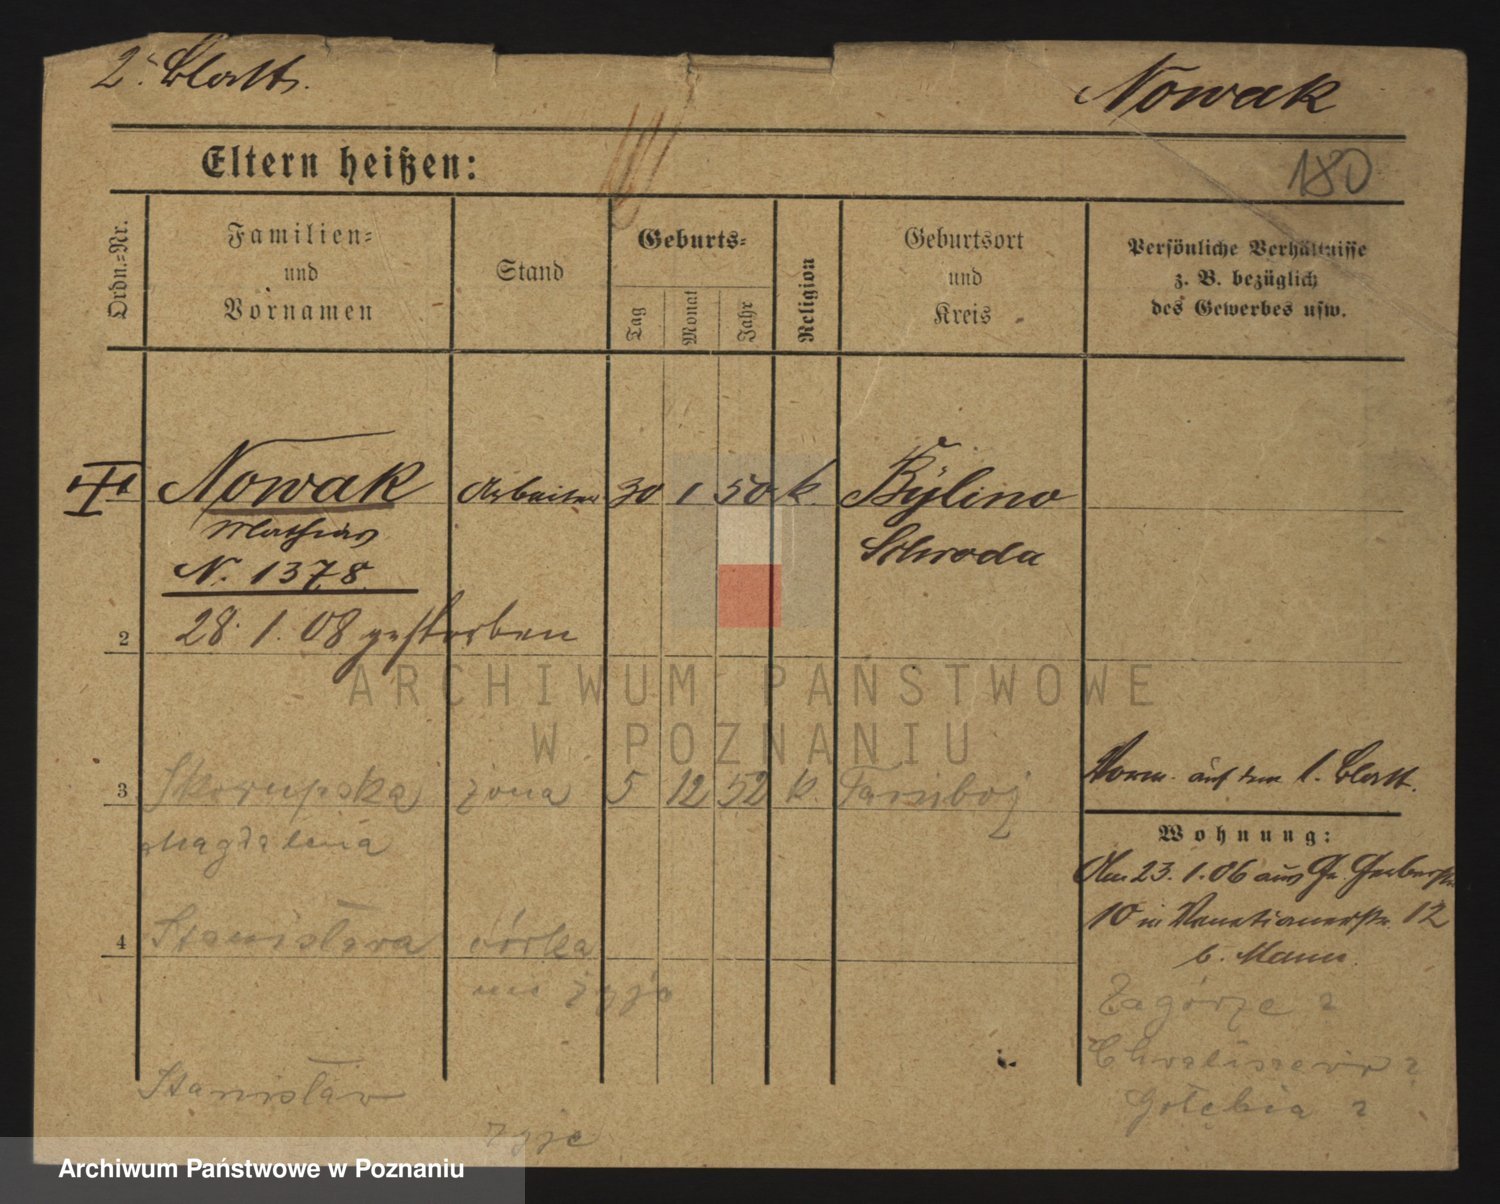 2. Blatt.
Nowak
180
Eltern heißen:
Ordn.-Nr.
Familien- und Vornamen
Stand
Geburts-
Tag
Monat
Jahr
Religion
Geburtsort und Kreis
Persönliche Verhältnisse z. B. bezüglich des Gewerbes usw.
Nowak Arbeiter 30 1 50 k. Bylino
Mathias Schroda
N. 1378.
2 28. 1. 08 gestorben
ARCHIWUM PAŃSTWOWE
W POZNANIU
Verm. auf dem 1. Blatt.
3 Skorupska żona 5 12 52 k.
Magdalena
Wohnung:
Am 23.1.06 aus Gr. Gerberstr.
10 in Venetianerstr. 12
b. Mann.
4 Stanisława córka
nie żyje
Zagórze 2
Chwaliszewo 2
Stanisław
Gołębia 2
żyje
Archiwum Państwowe w Poznaniu